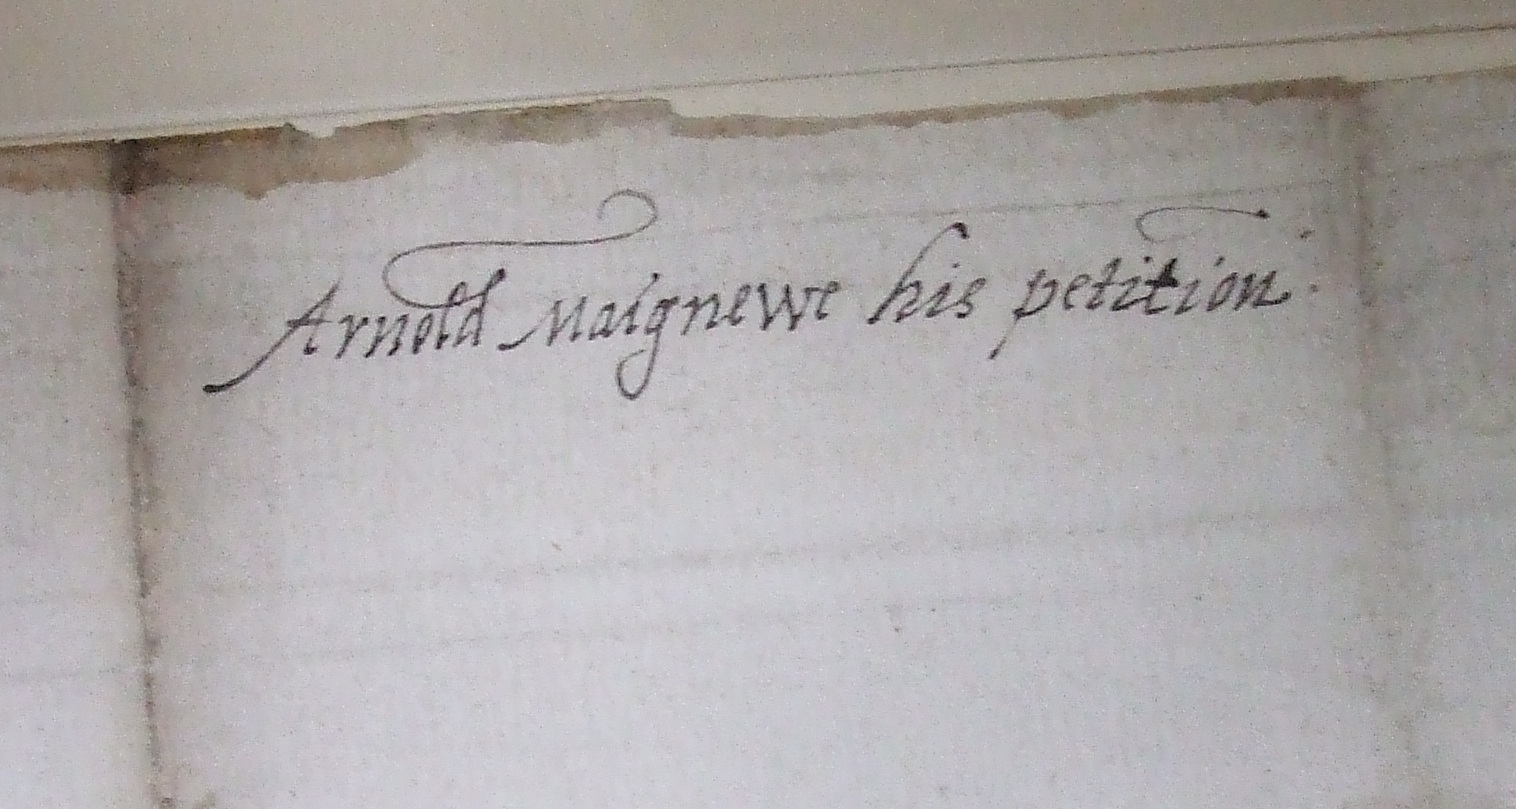 Arnold Maignewe his petition.